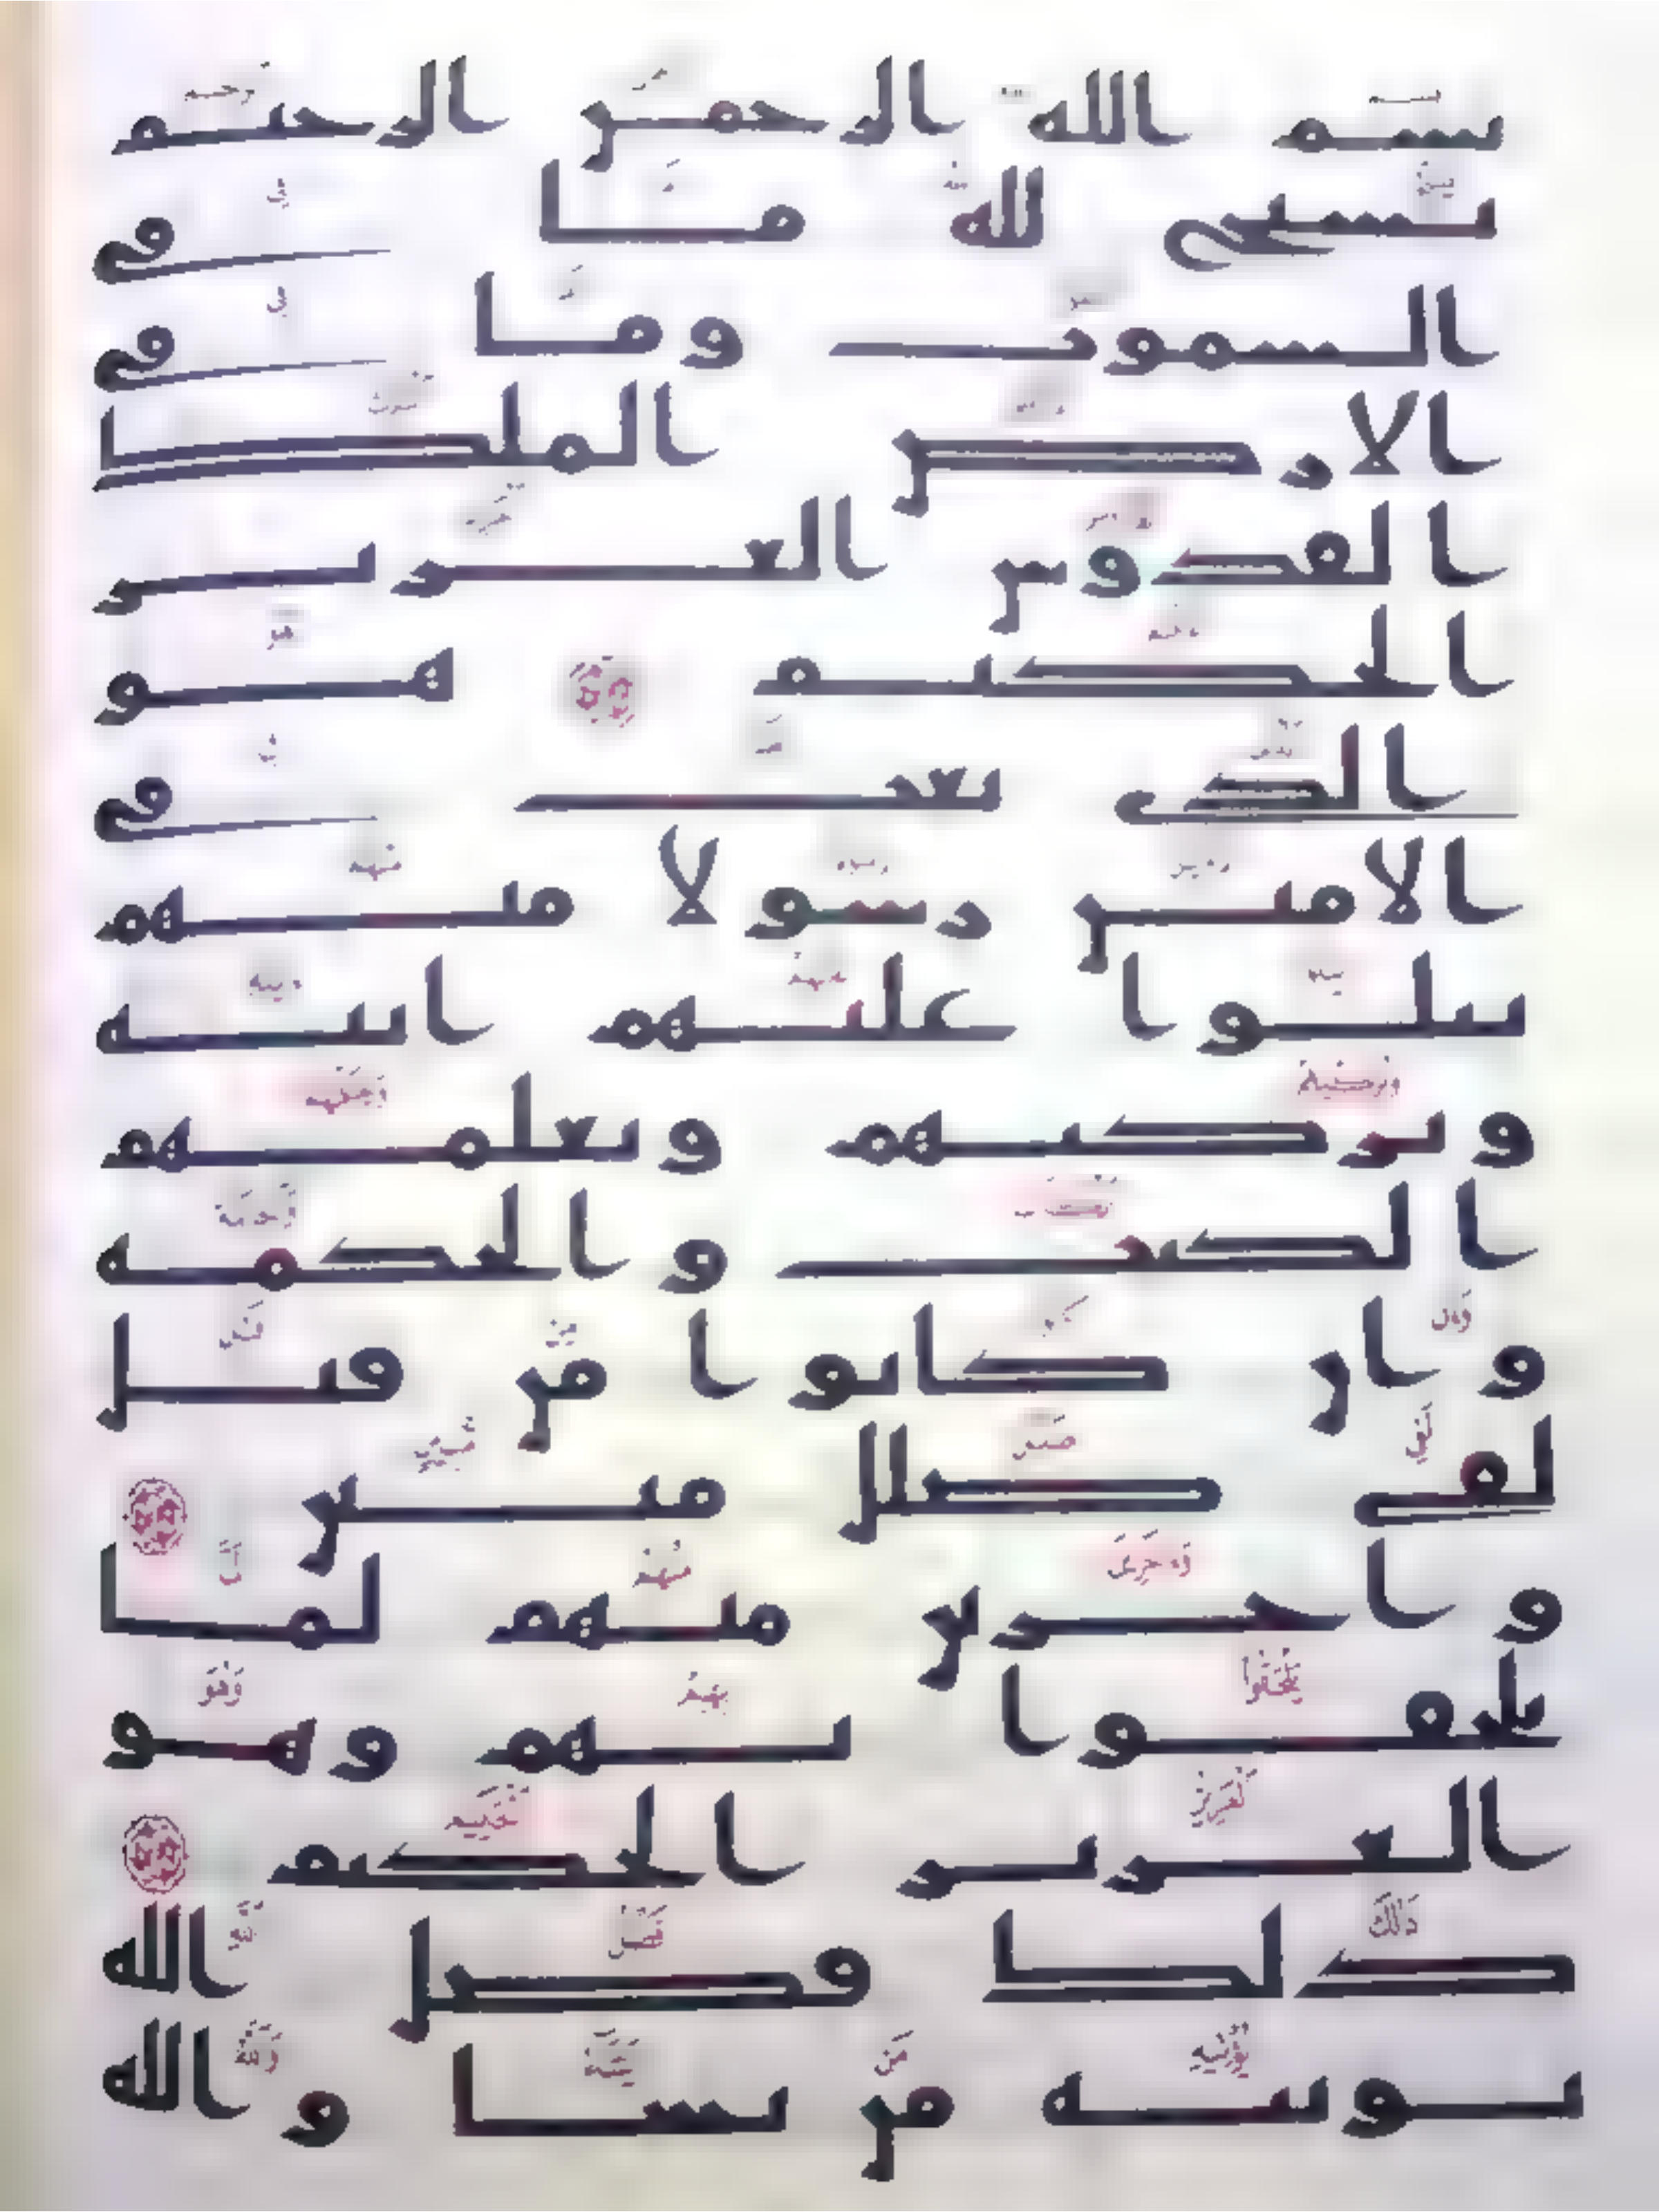 بسم الله الرحمن الرحيم
يسبح لله ما في
السموت وما في
الارض الملك
القدوس العزيز
الحكيم هو
الذي بعث في
الامين رسولا منهم
يتلوا عليهم ايته
ويزكيهم ويعلمهم
الكتب والحكمه
وان كانوا من قبل
لفي ضلل مبين
واخرين منهم لما
يلحقوا بهم وهو
العزيز الحكيم
ذلك فضل الله
يوتيه من يشا والله